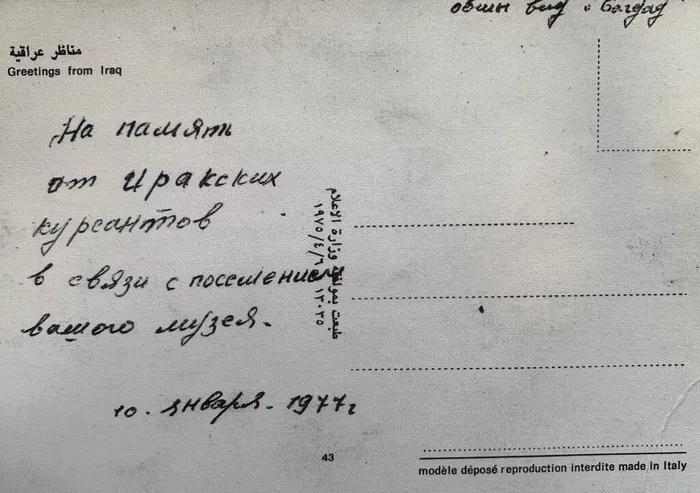 обшы вид г. Багдад
مناظر عراقية
Greetings from Iraq
На память
от Иракских
курсантов
в связи с посещением
вашого музея.
10. января. 1977г
طبعت بموافقة وزارة الاعلام
١٩٧٥/٤/٦
43
modèle déposé reproduction interdite made in Italy